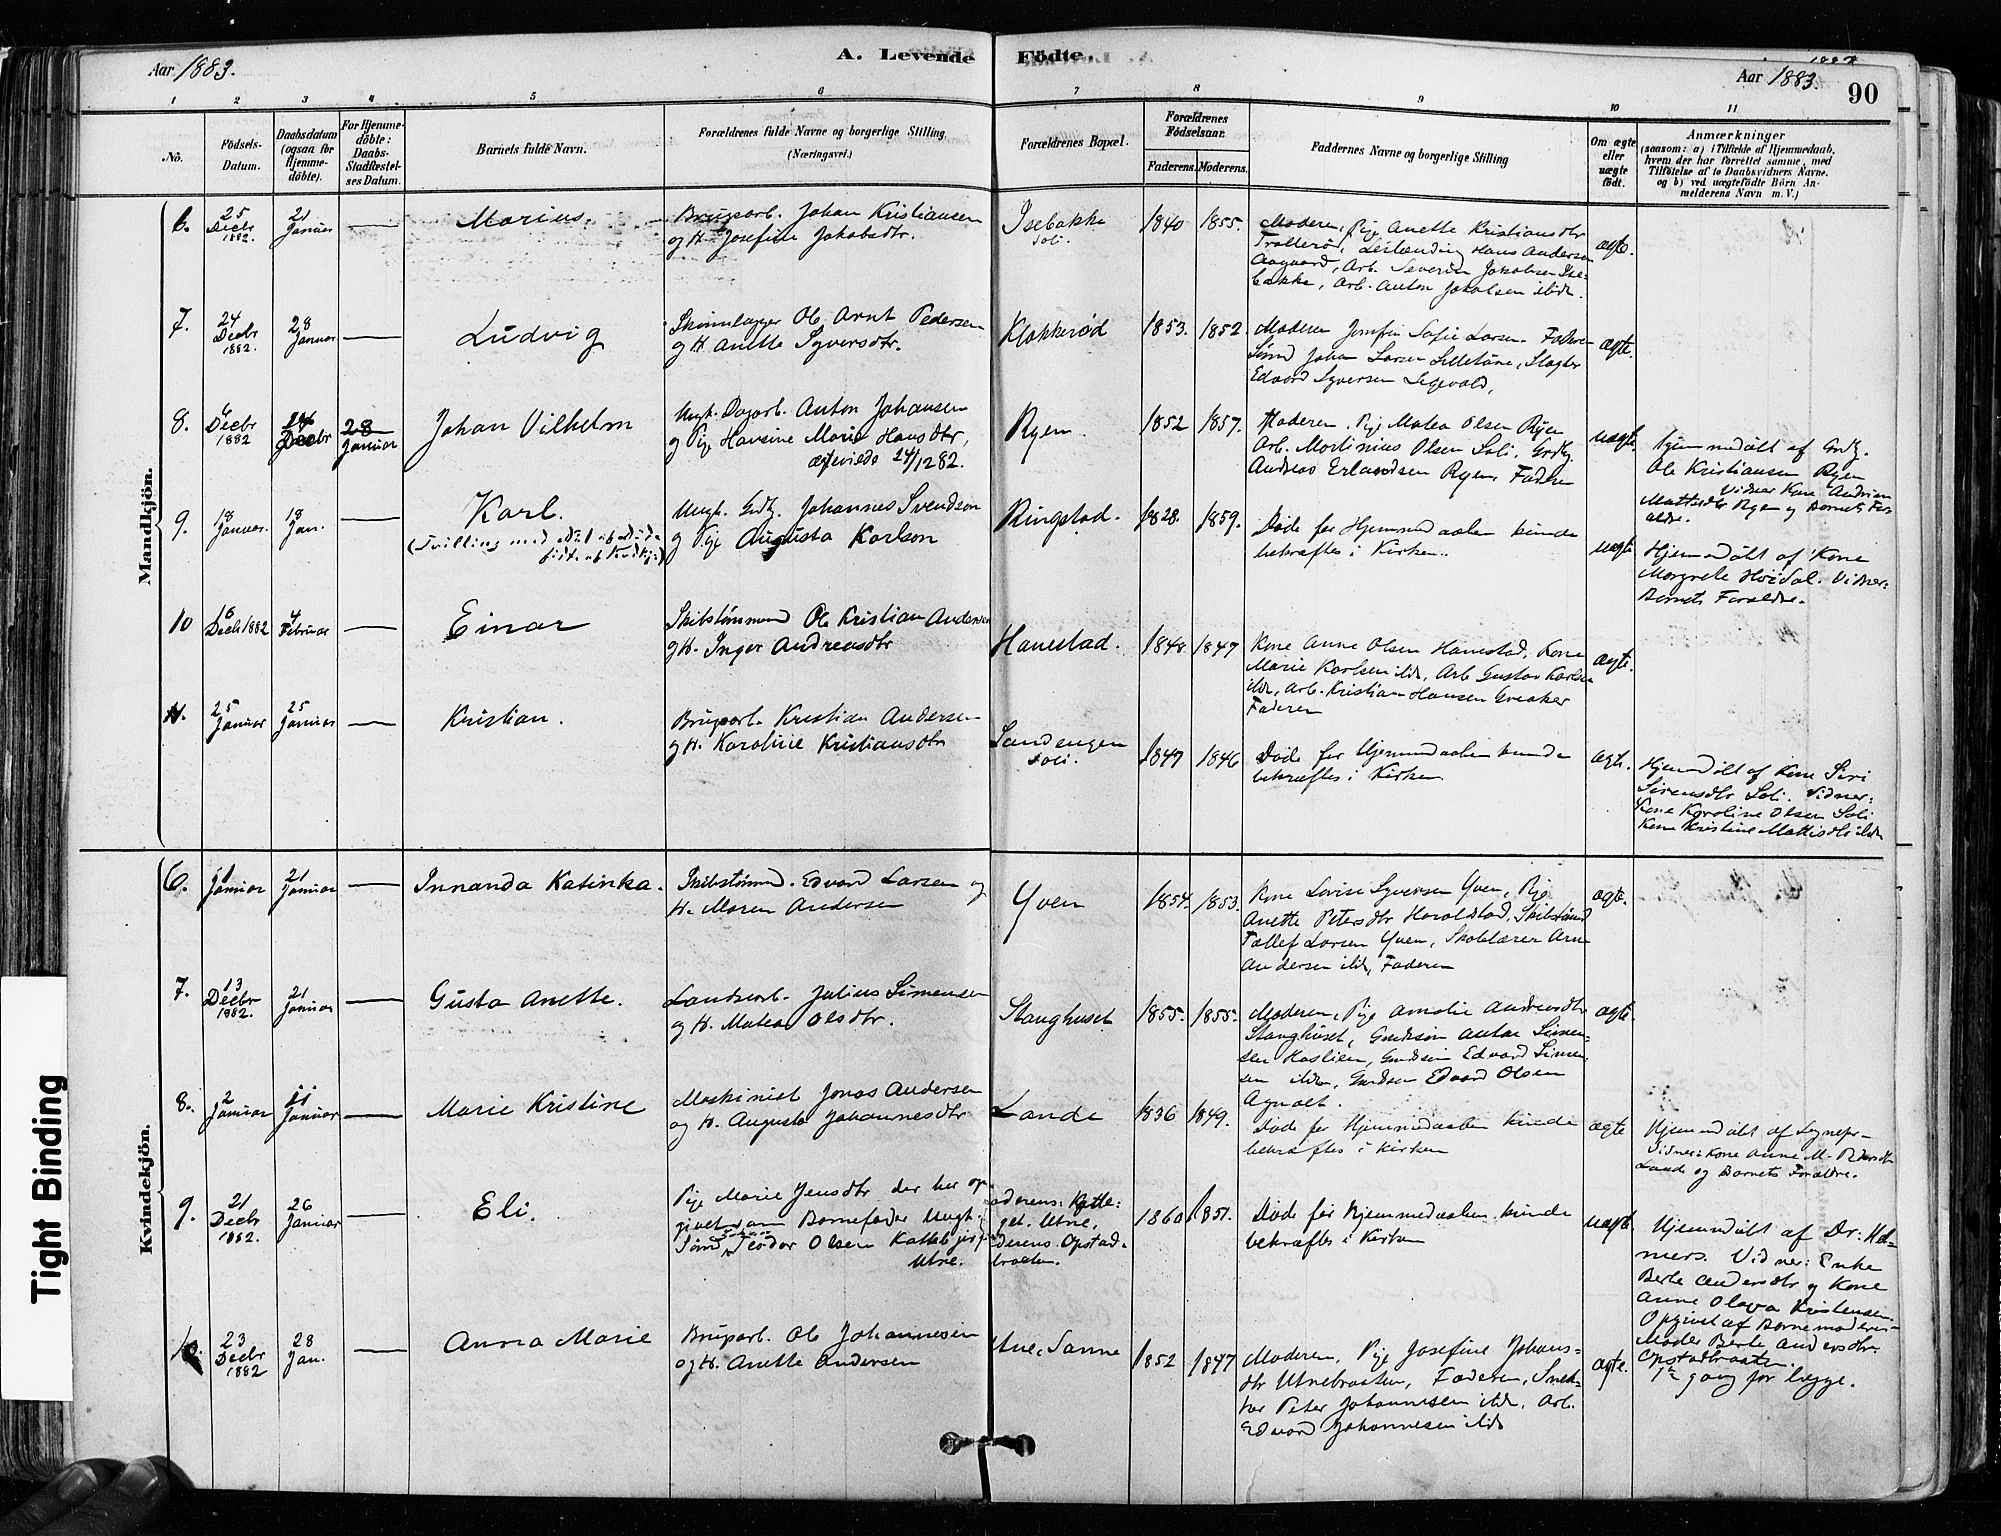 Aar 1883.
A. Levende Födte.
Aar 1883.
90
1 2 3 4 5 6 7 8 9 10 11
No.
Födsels-Datum.
Daabsdatum (ogsaa for Hjemme-döbte).
For Hjemme-döbte: Daabs-Stadfæstel-ses Datum.
Barnets fulde Navn.
Forældrenes fulde Navne og borgerlige Stilling.
(Næringsvei.)
Forældrenes Bopæl.
Forældrenes Födselsaar.
Faderens. Moderens.
Faddernes Navne og borgerlige Stilling
Om ægte eller uægte födt.
Anmærkninger
(saasom: a) i Tilfælde af Hjemmedaab, hvem der har forrettet samme, med Tilföielse af to Daabsvidners Navne, og b) ved uægtefödte Börn An-melderens Navn m. V.)
Mandkjön.
6. 25 Decbr 1882. 21 Januar — Marius.
Brugsarb. Johan Kristiansen
og H. Josefine Jakobsdtr.
Isebakke Soli. 1840 1855.
Moderen, Pige Anette Kristiansdtr
Trolleröd, Leilænding Hans Andersen
Aagaard, Arb. Severin Jakobsen Ise-
bakke, Arb. Anton Jakobsen ibide.
ægte.
7. 24 Decbr 1882. 28 Januar — Ludvig
Skinnlægger Ole Arnt Pedersen
og H. Anette Syversdtr.
Klokkeröd 1853. 1852.
Moderen Jomfru Sofie Larsen. Faderen
Sömd Johan Larsen Lilletune, Slagter
Edvard Syversen
ægte.
8. 6 Decbr 1882 24 Decbr 28 Januar Johan Vilhelm
Ungk. Dagarb. Anton Johansen
og Pige Hansine Marie Hansdtr,
ægteviede 24/12 82.
Ryen. 1852 1857.
Moderen, Pige Matea Olsen Ryen
Arb. Martinius Olsen Soli, Grdbr.
Andreas Erlandsen Ryen, Faderen
uægte.
Hjemmedöbt af Grdbr.
Ole Kristiansen Ryen
Vidner Kone Andrine
Mattisdtr Ryen og Barnets For-
ældre.
9. 18 Januar. 18 Jan. — Karl.
(Tvilling med No 1 af Död-
födte af Kvindkj.)
Ungk. Grdbr. Johannes Svendsen
og Pige Augusta Karlson
Ringstad. 1828. 1859.
Döde för Hjemmedaaben kunde
bekræftes i Kirken.
uægte
Hjemmedöbt af Kone
Margrete Höidal. Vidner:
Barnets Forældre.
10 16 Decb 1882 4 Februar — Einar
Skibstömmermd Ole Kristian Andersen
og H. Inger Andreasdtr
Hanestad. 1848 1847
Kone Anne Olsen Hanestad, Kone
Marie Karlsen ibde, Arb Gustav Karlsen
ibde, Arb. Kristian Hansen Greaker
Faderen
ægte.
11. 25 Januar 25 Januar — Kristian.
Brugsarb. Kristian Andersen
og H. Karoline Kristiansdtr
Sandengen Soli. 1847 1846
Döde för Hjemmedaaben kunde
bekræftes i Kirken
ægte.
Hjemmedöbt af Kone Siri
Sörensdtr Soli. Vidner:
Kone Karoline Olsen Soli
Kone Kristine Mattisdtr ibde
Kvindekjön.
6. 1 Januar 21 Januar — Innanda Katinka.
Skibstömmd. Edvard Larsen og
H. Maren Andersen
Yven 1854. 1853.
Kone Lovise Syversen Yven, Pige
Anette Petersdtr Haraldstad, Skibstömd
Tollef Larsen Yven, Skolelærer Arne
Andersen ibde, Faderen
ægte.
7. 13 Decbr 1882. 21 Januar — Gusta Anette.
Landsarb. Julius Simensen
og H. Matea Olsdtr.
Stanghuset 1855. 1855.
Moderen, Pige Amalie Andreasdtr
Stanghuset, Grdssön Anton Simen-
sen Haslien, Grdssön Edvard Simen-
sen ibden, Grdssön Edvard Olsen
Agnalt.
ægte.
8. 2 Januar 11 Januar — Marie Kristine
Maskinist Jonas Andersen
og H. Augusta Johannesdtr
Lande 1836 1849.
Döde för Hjemmedaaben kunde
bekræftes i Kirken
ægte
Hjemmedöbt af Sognepr.
Vidner: Kone Anne M. Pedersdtr
Lande og Barnets Forældre.
9. 21 Decbr 1882. 26 Januar — Eli.
Pige Marie Jensdtr der har op-
givet som Barnefader Ungk.
Sömd Johan Teodor Olsen Kattebjerg
Utne.
aderens: Katte-
get. Utne,
derens. Opstad-
braaten.
1860 1857.
Döde för Hjemmedaaben kunde
bekræftes i Kirken
uægte.
Hjemmedöbt af Dr: Hel-
mers. Vidner: Enke
Berte Andersdtr og Kone
Anne Olava Kristensen.
Opgivet af Barnemoderens
Moder Berte Andersdtr
Opstadbraaten.
1te gang for begge.
10. 23 Decbr 1882 28 Jan. — Anna Marie
Brugsarb. Ole Johannesen
og H. Anette Andersen
Utne, Sanne 1852 1847
Moderen, Pige Josefine Johans-
dtr Utnebraaten, Faderen, Snek-
ker Peter Johannesen ibde, Arb.
Edvard Johannesen ibde
ægte.
Tight Binding